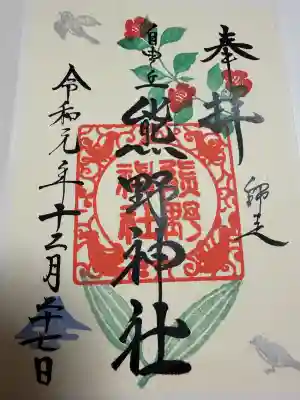 奉拝
師走
自由ヶ丘
熊野神社
熊野
神社
令和元年十二月二十七日